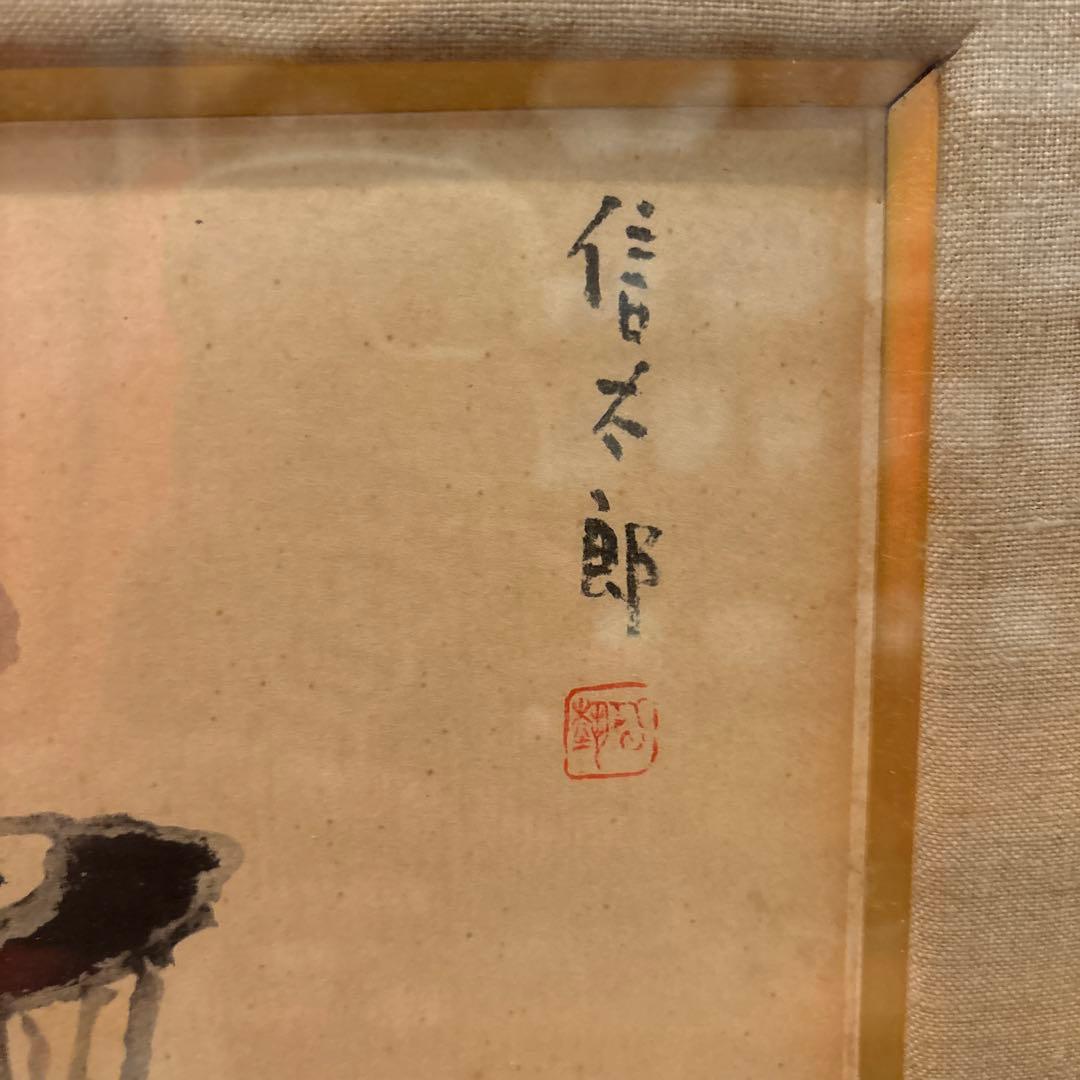 信太郎